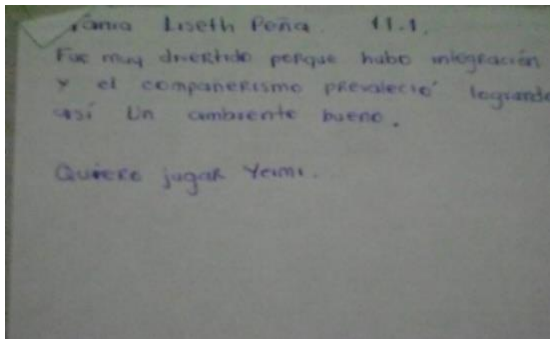 Tania Liseth Peña. 11.1.
Fue muy divertido porque hubo integración
y el compañerismo prevaleció logrando
así Un ambiente bueno.
Quiero jugar Yeimi.